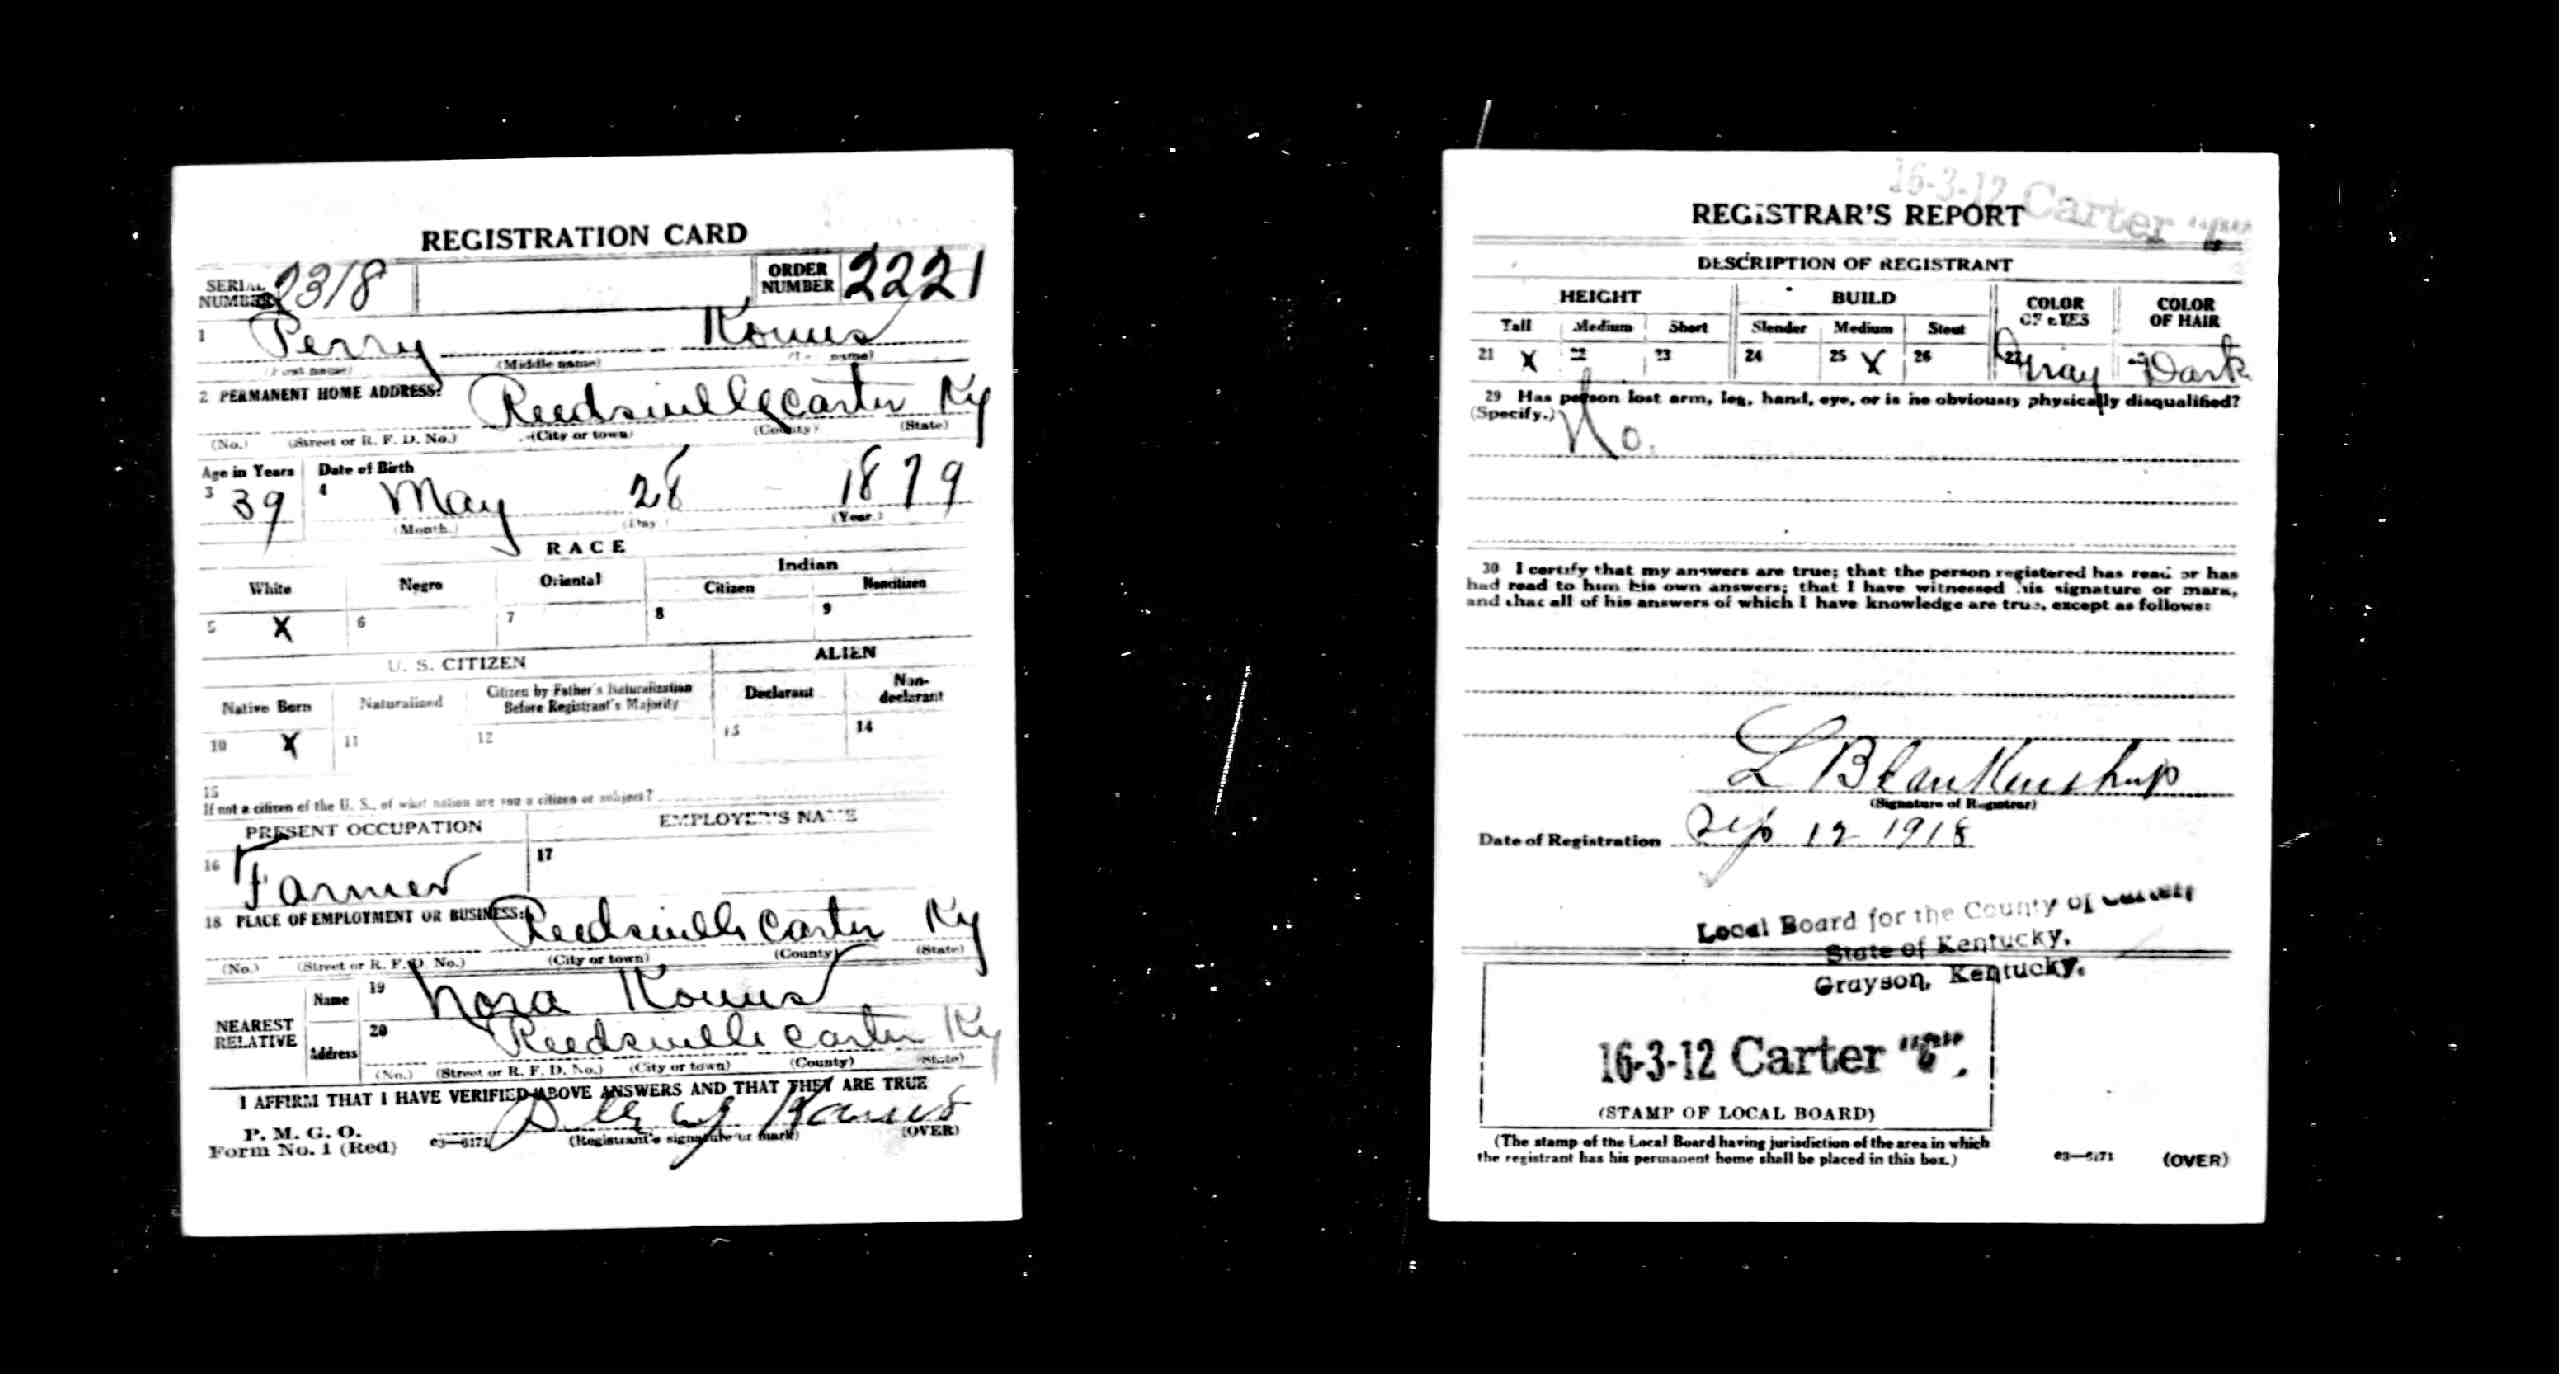 REGISTRATION CARD
SERIAL NUMBER 2318
ORDER NUMBER 2221
1 Perry Kouns
(First name) (Middle name) (Last name)
2 PERMANENT HOME ADDRESS: Reedsville Carter Ky
(No.) (Street or R. F. D. No.) (City or town) (County) (State)
Age in Years Date of Birth
3 39 4 May 28 1879
(Month.) (Day.) (Year.)
RACE
White Negro Oriental Indian
Citizen Noncitizen
5 X 6 7 8 9
U. S. CITIZEN ALIEN
Native Born Naturalized Citizen by Father's Naturalization Before Registrant's Majority Declarant Non-declarant
10 X 11 12 13 14
15
If not a citizen of the U. S., of what nation are you a citizen or subject?
PRESENT OCCUPATION EMPLOYER'S NAME
16 Farmer 17
18 PLACE OF EMPLOYMENT OR BUSINESS: Reedsville Carter Ky
(No.) (Street or R. F. D. No.) (City or town) (County) (State)
NEAREST RELATIVE Name 19 Nora Kouns
Address 20 Reedsville Carter Ky
(No.) (Street or R. F. D. No.) (City or town) (County) (State)
I AFFIRM THAT I HAVE VERIFIED ABOVE ANSWERS AND THAT THEY ARE TRUE
P. M. G. O.
Form No. 1 (Red) 03—6171 (Registrant's signature or mark) (OVER)
16-3-12 Carter
REGISTRAR'S REPORT
DESCRIPTION OF REGISTRANT
HEIGHT BUILD COLOR OF EYES COLOR OF HAIR
Tall Medium Short Slender Medium Stout
21 X 22 23 24 25 X 26 27 Gray Dark
29 Has person lost arm, leg, hand, eye, or is he obviously physically disqualified?
(Specify.) No.
30 I certify that my answers are true; that the person registered has read or has
had read to him his own answers; that I have witnessed his signature or mark,
and that all of his answers of which I have knowledge are true, except as follows:
L Blankenship
(Signature of Registrar)
Date of Registration Sep 12 1918
Local Board for the County of Carter,
State of Kentucky,
Grayson, Kentucky.
16-3-12 Carter
(STAMP OF LOCAL BOARD)
(The stamp of the Local Board having jurisdiction of the area in which
the registrant has his permanent home shall be placed in this box.)
03—6171 (OVER)